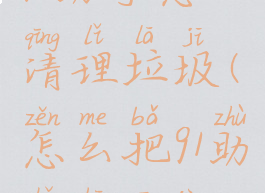 qīng lǐ lā jī
清理垃圾(
zěn me bǎ zhù
怎么把91助